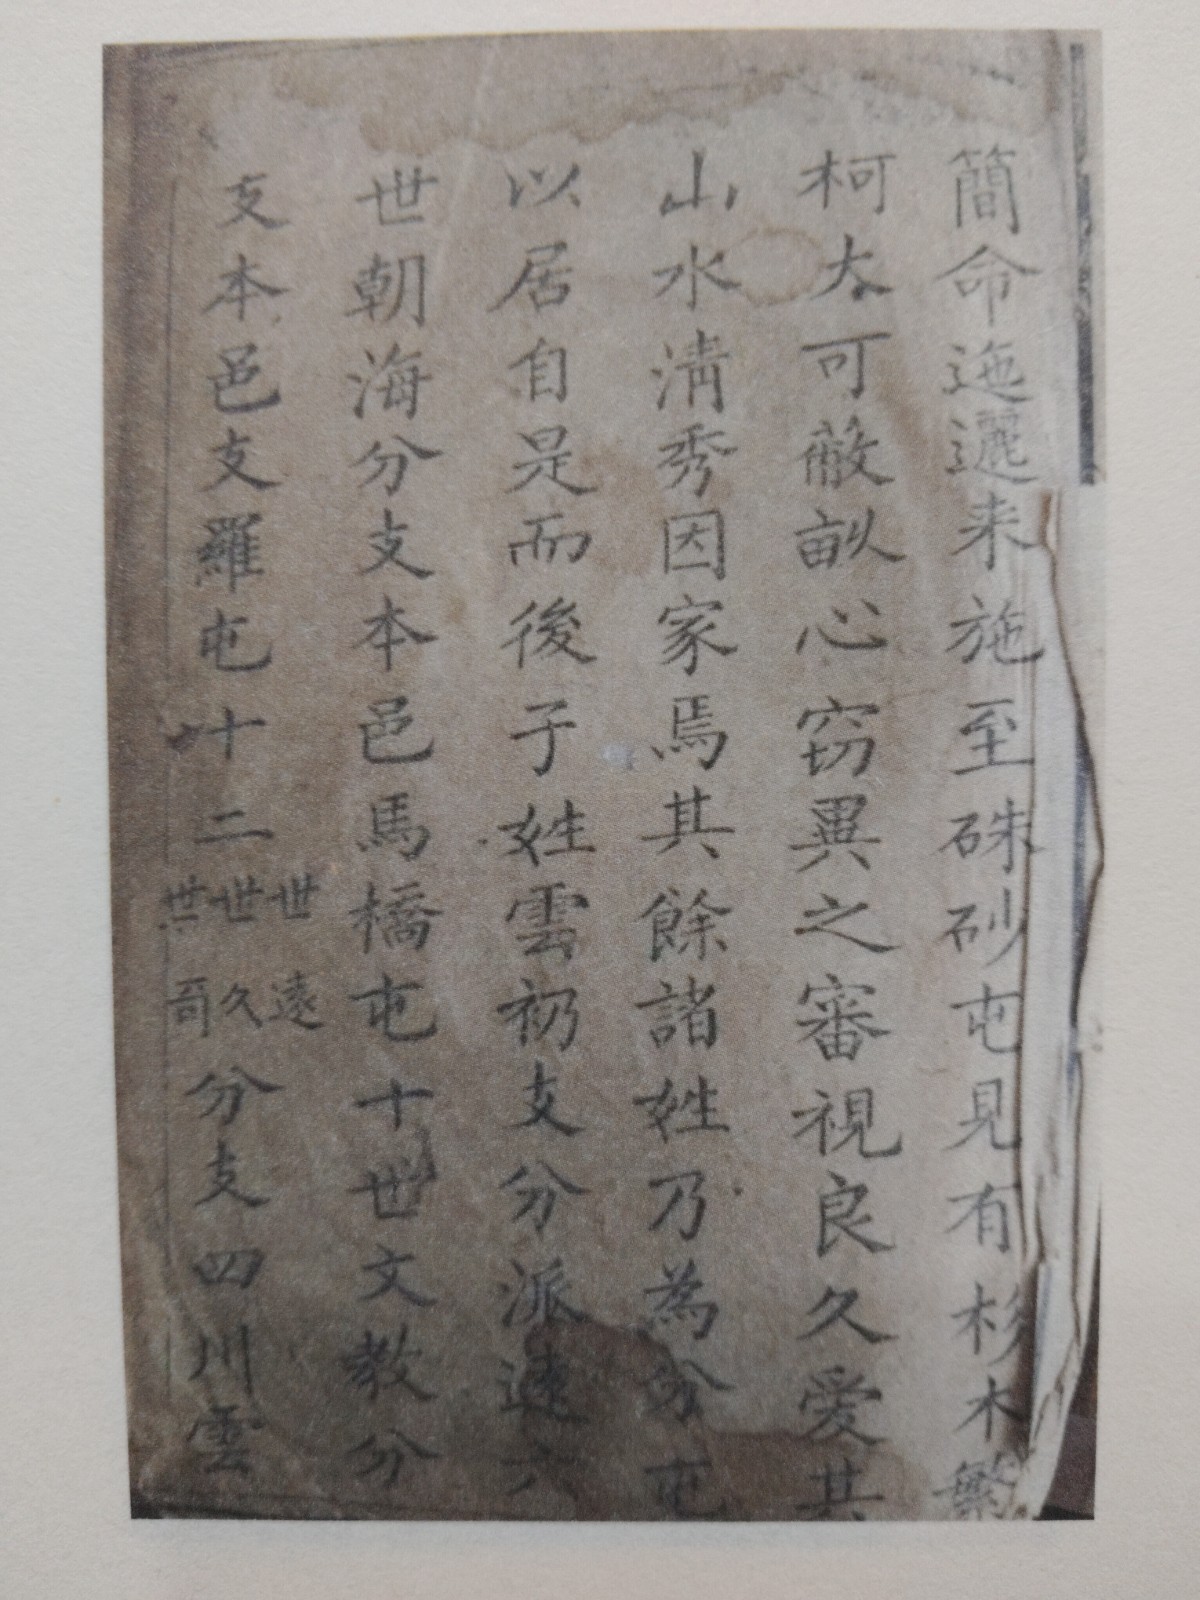 簡命迤邐来施至硃砂屯見有杉木繁
柯大可蔽畝心窃異之審視良久愛其
山水清秀因家焉其餘諸姓乃為分屯
以居自是而後子姓雲礽支分派遠六
世朝海分支本邑馬橋屯十世文教分
支本邑支羅屯十二世遠世久世哥分支四川雲